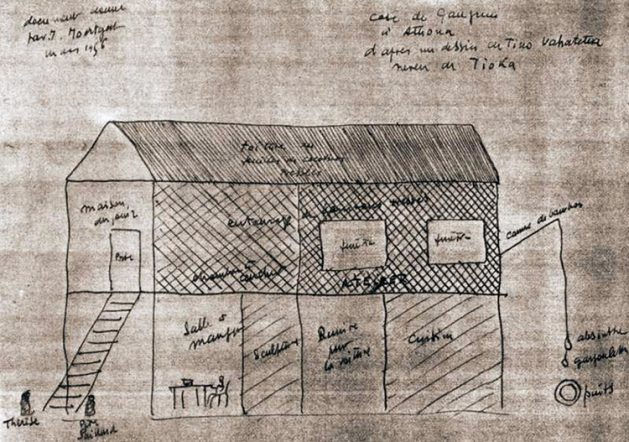 document donné
par J.
mars 1956
case de Gauguin
à Atuona
d'après un dessin de Timo Vahatetua
neveu de Tioka
Toiture en
feuilles de cocotier
tressées
maison
du jouir
Porte
entourage de bambous tressés
fenêtre
fenêtre
chambre à
coucher
ATELIER
canne de bambou
Salle à
manger
Sculpture
Remise
pour
la voiture
Cuisine
absinthe
gargoulette
puits
Thérèse
Père
Paillard